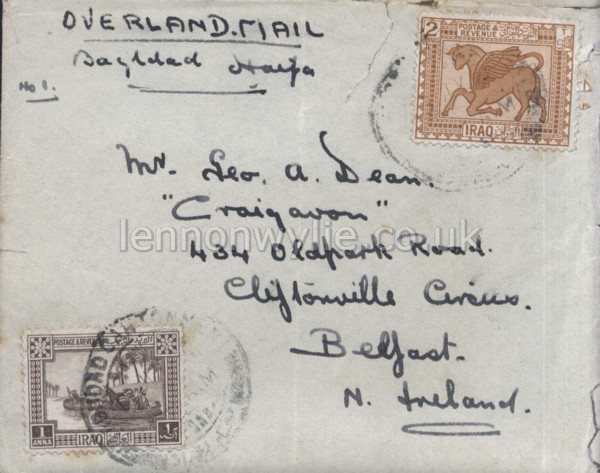 OVERLAND. MAIL
Baghdad Haifa
No 1.
2
POSTAGE & REVENUE
IRAQ
Mr. Geo. A. Dean.
"Craigavon"
434 Oldpark Road.
Cliftonville Circus.
Belfast.
N. Ireland.
lennonwylie.co.uk
POSTAGE & REVENUE
1
ANNA
IRAQ